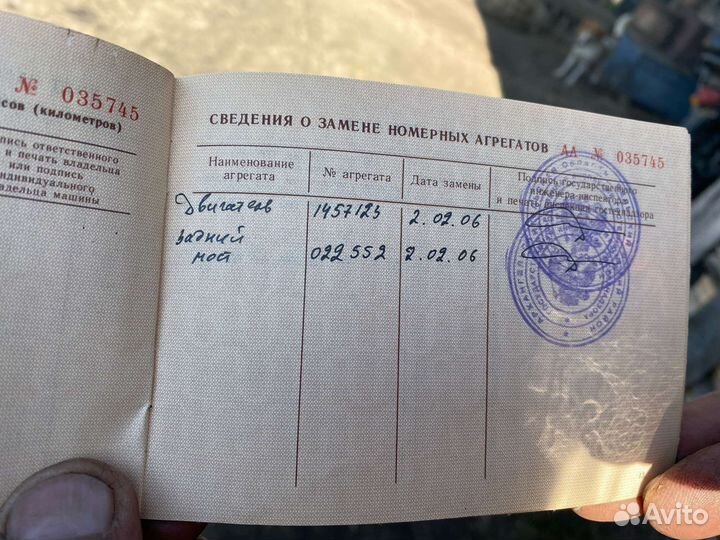 № 035745
сов (километров)
пись ответственного
и печать владельца
или подпись
индивидуального
адельца машины
СВЕДЕНИЯ О ЗАМЕНЕ НОМЕРНЫХ АГРЕГАТОВ АА № 035745
Наименование агрегата
№ агрегата
Дата замены
Подпись государственного
инженера-инспектора
и печать инспекции гостехнадзора
Двигатель 1457123 2.02.06
задний
мост 022552 2.02.06
АРХАНГЕЛ
РАЙОН
Avito